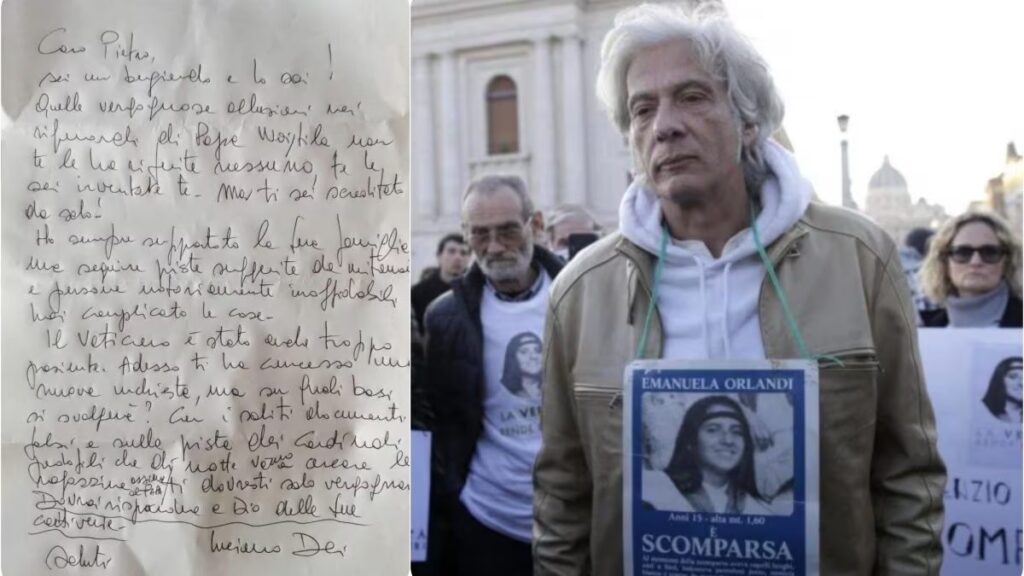 Caro Pietro,
sei un bugiardo e lo sai !
Quelle vergognose allusioni nei
riguardi di Papa Wojtila non
te le ha riferite nessuno, te le
sei inventate te. Ma ti sei screditato
da solo!
Ho sempre supportato la tua famiglia
ma seguire piste suggerite da
e persone notoriamente inaffidabili
hai complicato le cose.
Il Vaticano è stato anche troppo
paziente. Adesso ti ha concesso una
nuova inchiesta, ma su quali basi
si svolgerà? Con i soliti documenti
falsi e sulla pista dei Cardinali
pedofili che di notte
ti dovresti solo vergogna
Dovrai rispondere a Dio delle tue
cattiverie
Saluti Luciano
EMANUELA ORLANDI
Anni 15 - alta mt. 1,60
È
SCOMPARSA
LA VER
RENDE